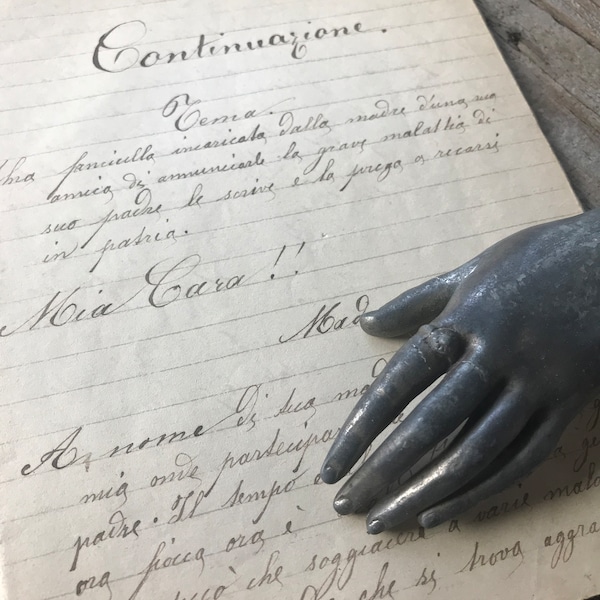 Continuazione.
Tema.
Una fanciulla incaricata dalla madre d'una sua
amica di annunciarle la grave malattia di
suo padre le scrive e la prega a recarsi
in patria.
Mia Cara!!
Mad
A nome di sua mad
mia onde partecipar
padre. Il tempo
ora fiocca ora è
che soggiacere a varie mala
che si trova aggra